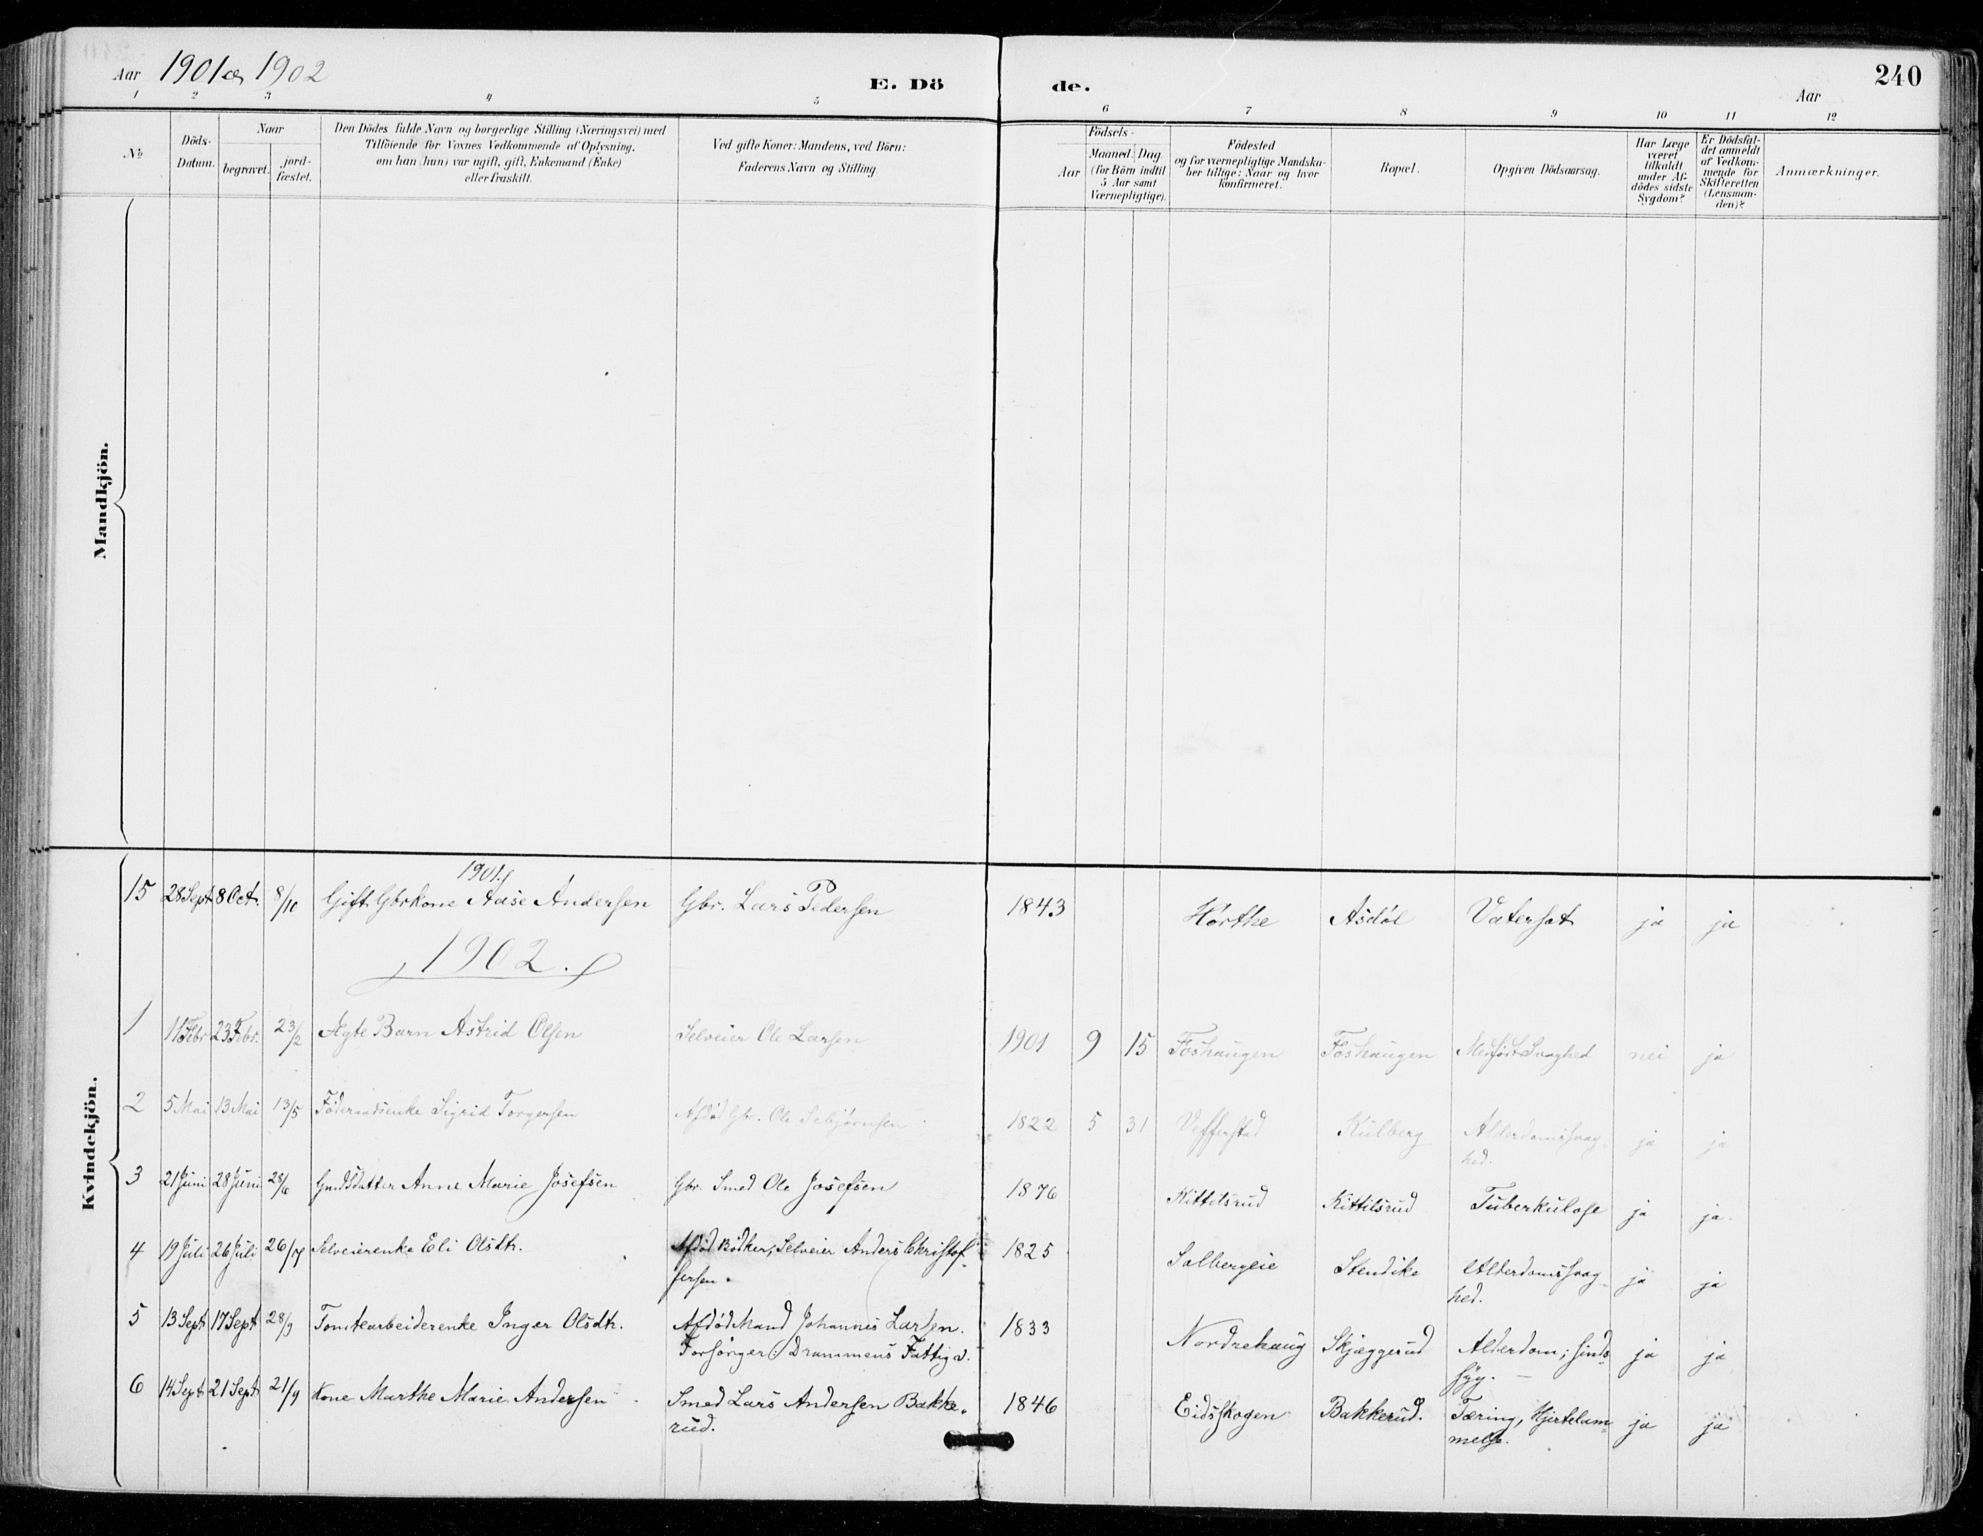 Aar 1901 og 1902
E. Dö
de.
Aar
240
1 2 3 4 5 6 7 8 9 10 11 12
No
Döds-
Datum.
Naar
begravet.
jord-
fæstet.
Den Dödes fulde Navn og borgerlige Stilling (Næringsvei) med
Tilföiende for Voxnes Vedkommende af Oplysning,
om han (hun) var ugift, gift, Enkemand (Enke)
eller fraskilt.
Ved gifte Koner: Mandens, ved Börn:
Faderens Navn og Stilling.
Födsels-
Aar
Maaned. Dag.
(for Börn indtil
5 Aar samt
Værnepligtige).
Födested
og for værnepligtige Mandska-
ber tillige: Naar og hvor
konfirmeret.
Bopæl.
Opgiven Dödsaarsag.
Har Læge
været
tilkaldt
under Af-
dödes sidste
Sygdom?
Er Dödsfal-
det anmeldt
af Vedkom-
mende for
Skifteretten
(Lensman-
den)?
Anmærkninger.
Mandkjön.
Kvindekjön.
1901.
15 28 Sept 8 Oct. 8/10 Gift Gbrkone Aase Andersen Gbr. Lars Pedersen 1843 Hørthe Asdøl Vatersot ja ja
1902.
1 11 Febr 23 Febr. 23/2 Ægte Barn Astrid Olsen Selveier Ole Larsen 1901 9 15 Foshaugen Foshaugen Medført Svaghed nei ja
2 5 Mai 13 Mai 13/5 Føderaadsenke Sigrid Torgersen Afdød Gbr. Ole Sebjørnsen 1822 5 31 Kulberg Alderdomssvag-
hed. ja ja
3 21 Juni 28 Juni 28/6 Gaardsdatter Anne Marie Josefsen Gbr. Smed Ole Josefsen 1876 Kittilsrud Kittilsrud Tuberkulose ja ja.
4 19 Juli 26 Juli 26/7 Selveierenke Eli Olsdtr. Afdød Bødker, Selveier Anders Christof-
fersen. 1825 Solbergeie Stendike Alderdomssvag-
hed. ja ja
5 13 Sept 17 Sept 28/9 Tomtearbeiderenke Inger Olsdtr. Afdød Mand Johannes Larsen.
Forsørger: Drammens Fattigv. 1833 Nordrehaug Skjæggerud Alderdom; sinds-
syg. ja ja
6 14 Sept 21 Sept 21/9 Kone Marthe Marie Andersen Smed Lars Andersen Bakke-
rud. 1846 Eidsskogen Bakkerud. Tæring, Hjertelam-
melse. ja ja